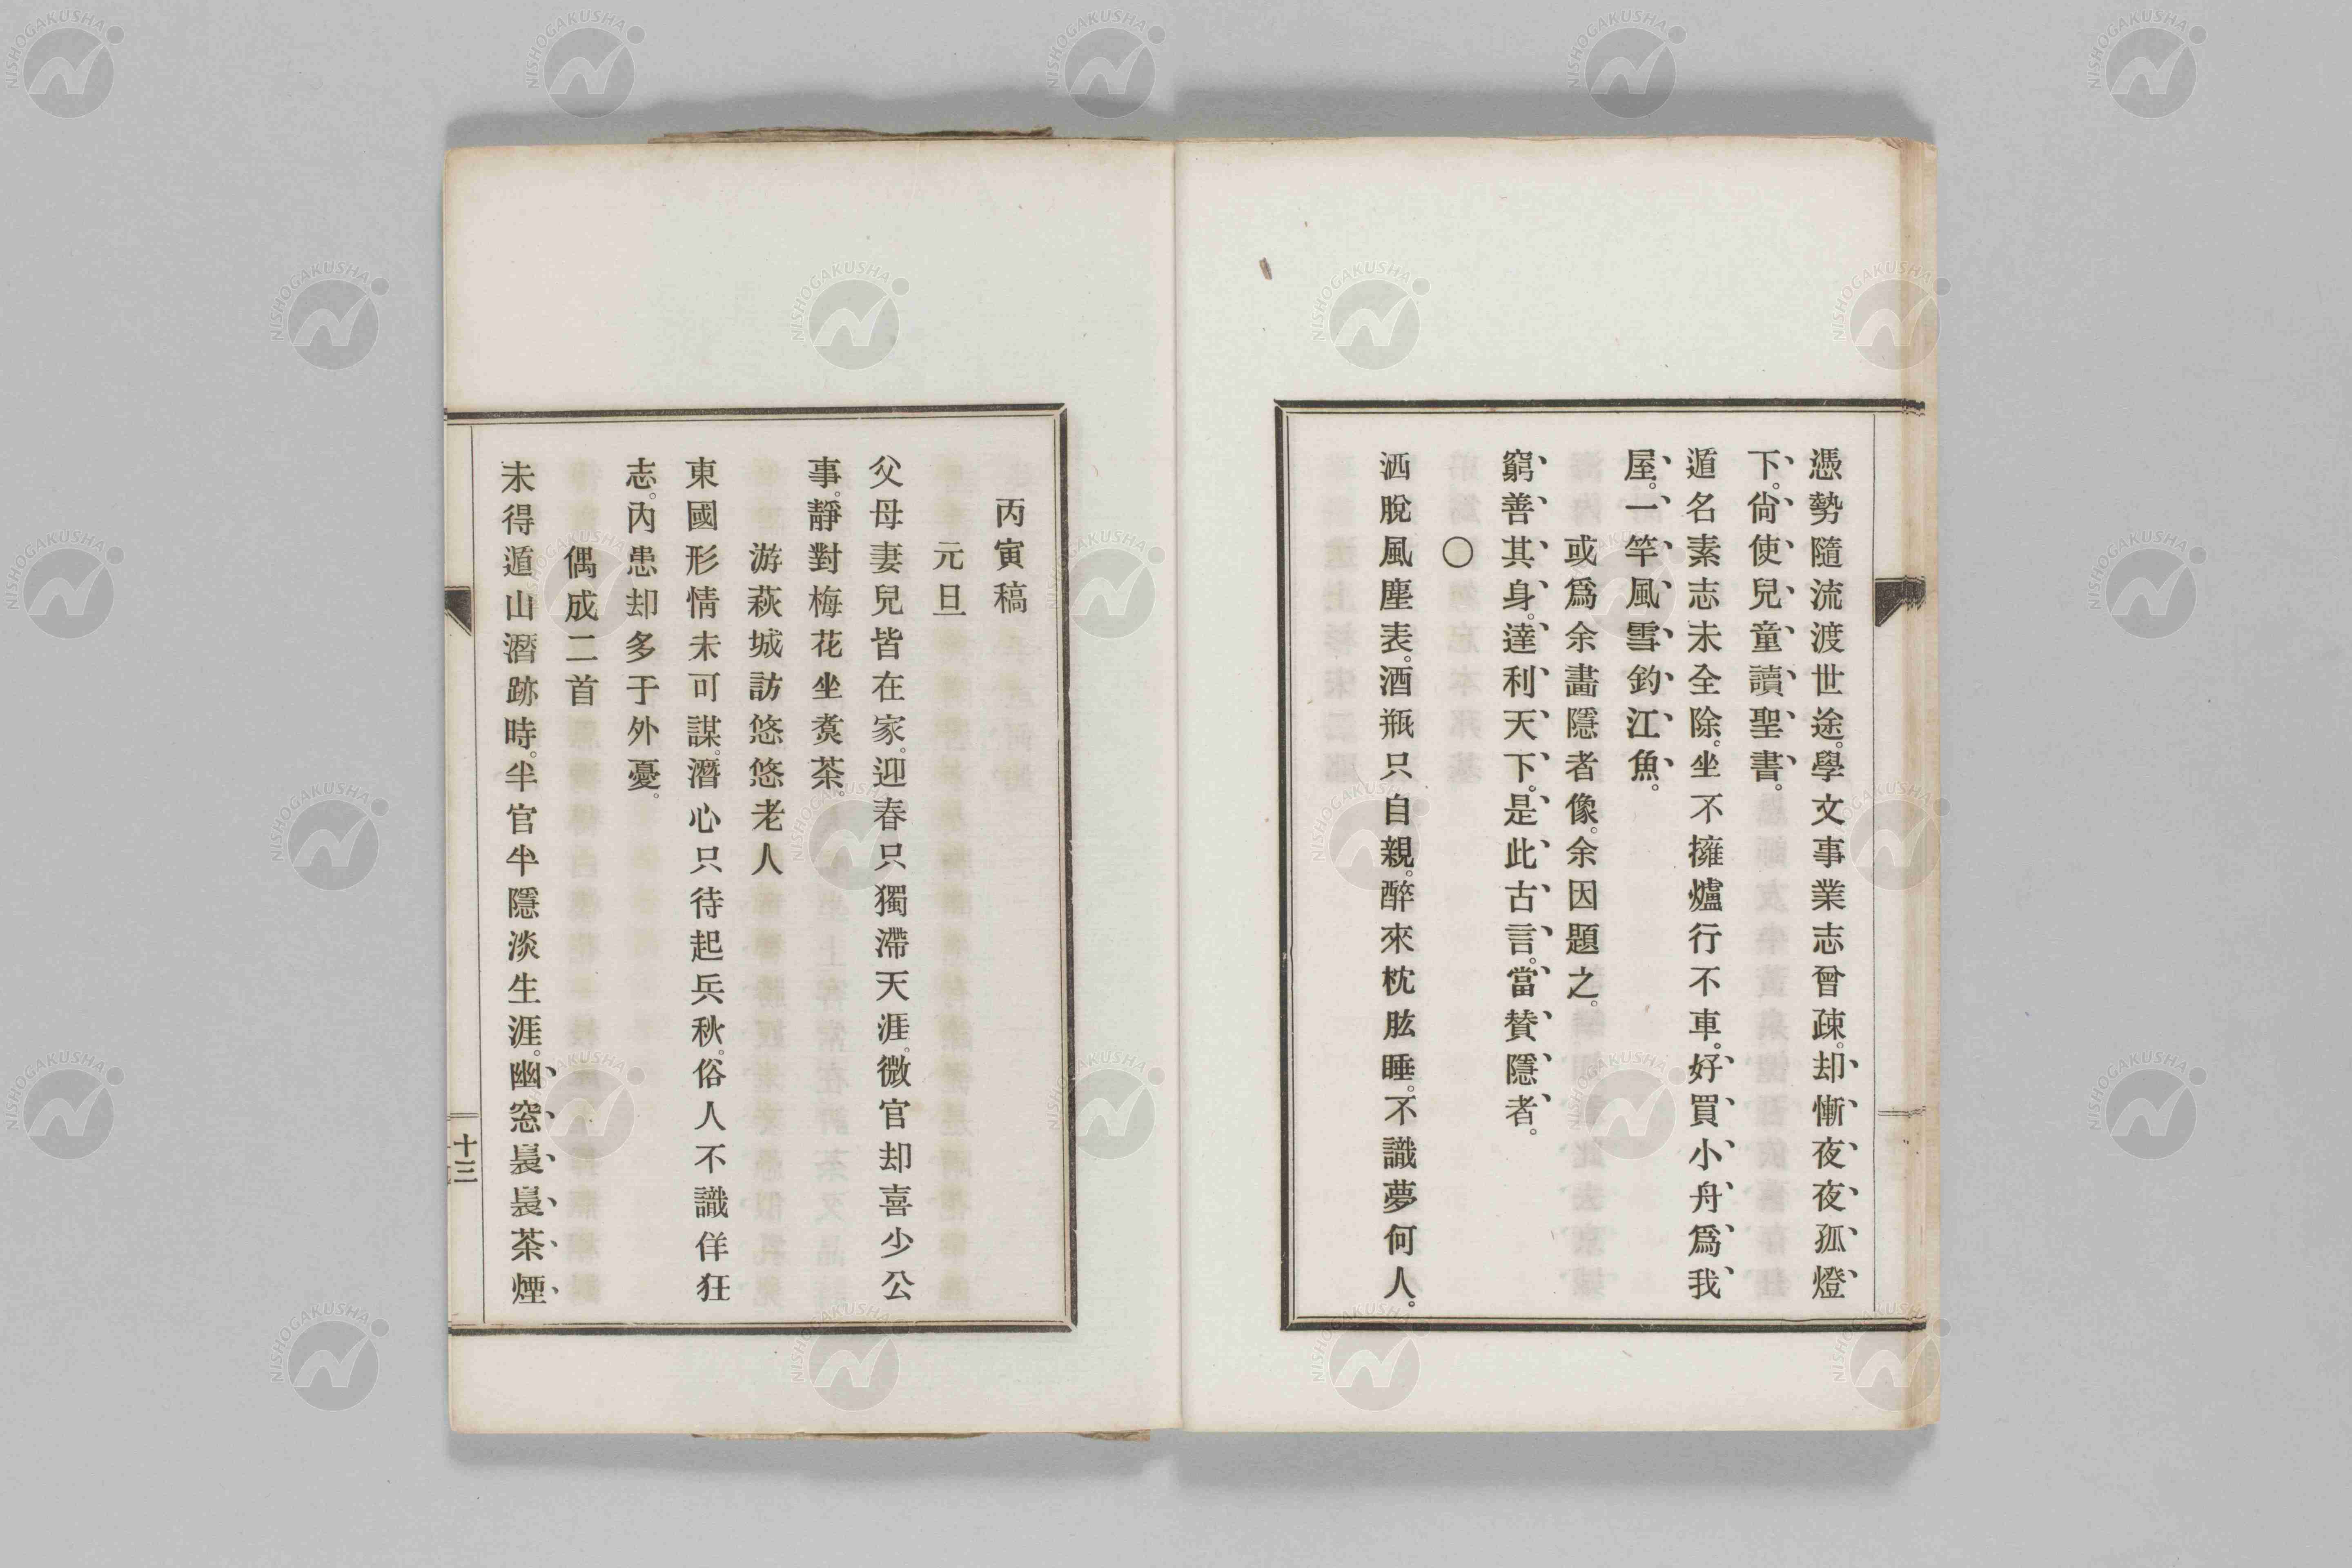 憑勢隨流渡世途。學文事業志曾疎。却慚夜夜孤燈
下。尙使兒童讀聖書。
遁名素志未全除。坐不擁爐行不車。好買小舟爲我
屋。一竿風雪釣江魚。
或爲余畵隱者像。余因題之。
窮善其身。達利天下。是此古言。當賛隱者。
〇
洒脫風塵表。酒瓶只自親。醉來枕肱睡。不識夢何人。
丙寅稿
元旦
父母妻兒皆在家。迎春只獨滯天涯。微官却喜少公
事。靜對梅花坐煑茶。
游萩城訪悠悠老人
東國形情未可謀。潛心只待起兵秋。俗人不識佯狂
志。內患却多于外憂。
偶成二首
未得遁山潛跡時。半官半隱淡生涯。幽窓裊裊茶煙
十三
NISHOGAKUSHA